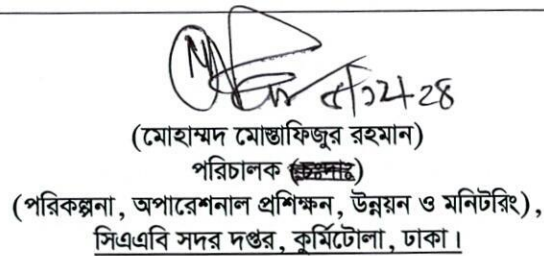 (মোহাম্মদ মোস্তাফিজুর রহমান)
পরিচালক
(পরিকল্পনা, অপারেশনাল প্রশিক্ষন, উন্নয়ন ও মনিটরিং),
সিএএবি সদর দপ্তর, কুর্মিটোলা, ঢাকা।